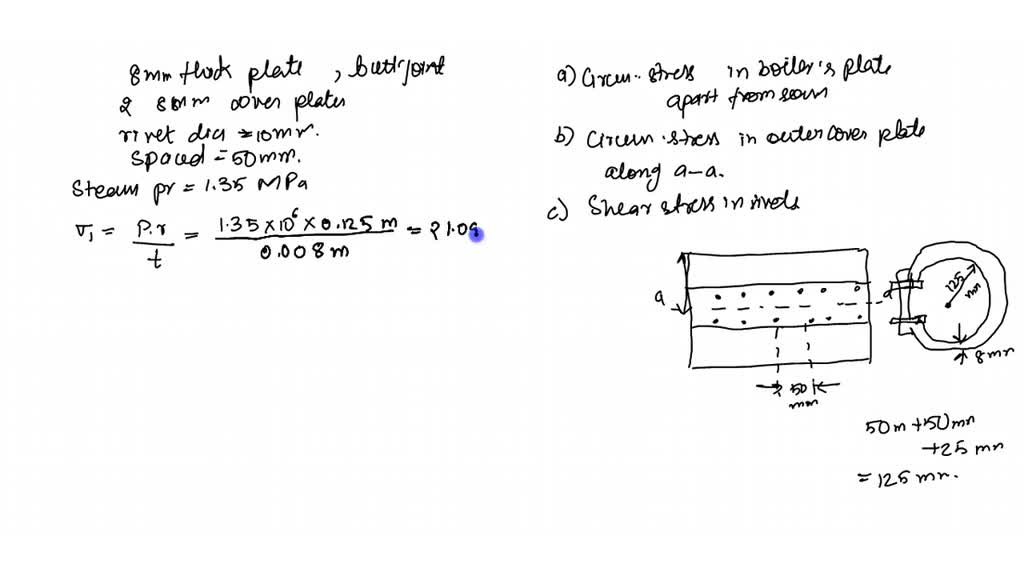 8mm thick plate, butt joint
2 8mm cover plates
rivet dia = 10mm.
spaced = 50mm.
Steam pr = 1.35 MPa
σ₁ = P.r / t = 1.35 × 10⁶ × 0.125 m / 0.008 m = 21.09
a) Circum. stress in boiler's plate
apart from seam
b) Circum. stress in outer cover plate
along a-a.
c) Shear stress in rivets
a
a
125
mm
8mm
50
mm
50m + 50mm
+25 mm
= 125 mm.